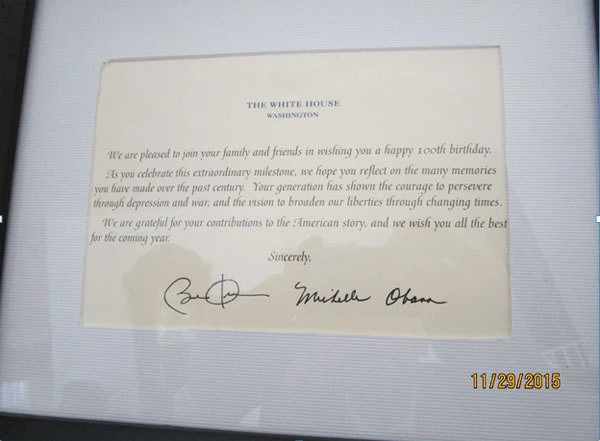 THE WHITE HOUSE
WASHINGTON
We are pleased to join your family and friends in wishing you a happy 100th birthday.
As you celebrate this extraordinary milestone, we hope you reflect on the many memories
you have made over the past century. Your generation has shown the courage to persevere
through depression and war, and the vision to broaden our liberties through changing times.
We are grateful for your contributions to the American story, and we wish you all the best
for the coming year.
Sincerely,
Michelle Obama
11/29/2015